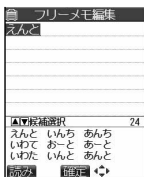 フリーメモ編集
えんと
▲▼候補選択 24
えんと いんち あんち
いわて おーと あーと
いわた いんと あんと
読み 確定